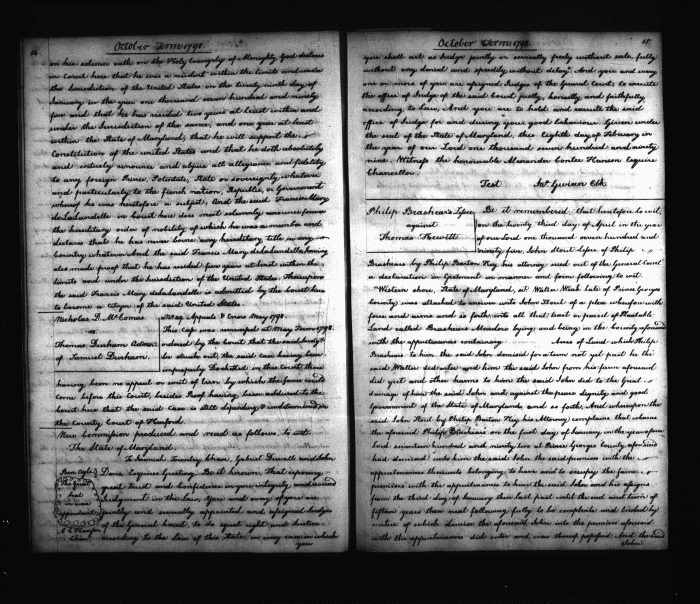 14
October Term 1798.
on his solemn oath on the Holy Evangely of Almighty God declares
in Court here that he was a resident within the limits and under
the Jurisdiction of the United States on the twenty ninth day of
January in the year one thousand seven hundred and ninety
five and that he has resided two years at least within and
under the Jurisdiction of the same, and one year at least
within the State of Maryland, that he will support the
Constitution of the united States and that he doth absolutely
and entirely renounce and abjure all allegiance and fidelity
to any foreign Prince, Potentate, State or sovereignty whatever
and particularly to the french nation, Republic, or Government
whereof he was heretofore a subject, And the said Francis Mary
in Court here does most solemnly renounce forever
the hereditary order of nobility of which he was a member and
declares that he has never borne any hereditary title in any
Country whatever And the said Francis Mary having
also made proof that he has resided five years at least within the
limits and under the jurisdiction of the United States. Therefore
the said Francis Mary is admitted by the Court here
to become a Citizen of the said United States.
Nicholas D. McComas
Thomas Durham Admr.
of Samuel Durham.
May Appeals & Errors May 1798.
This case was at May Term 1798.
ordered by the Court that the said
be struck out, the said Case having been
improperly Docketed in this Court, there
having been no appeal or writ of Error by which the same could
come before this Court, besides Proof having been adduced to the
Court here that the said case is still depending & undetermined in
the County Court of Harford.
New Commission produced and read as follows to wit
The State of Maryland.
To Samuel Townley Chase, Gabriel Duvall and John
Ben Ogle
Done Esquires Greeting. Be it known, That reposing
The Great
Seal
great trust and confidence in your integrity and sound
Judgement in the Law, You and every of you are
jointly and severally appointed and assigned Judges
of the General Court, To do equal right and Justice
according to the Law of this State, in every case in which
you
October Term 1798.
15
you shall act as Judge jointly or severally freely without sale, fully
without any denial and speedily without delay. And you and every
one or more of you are assigned Judges of the General Court, to execute
the office of Judge of the said Court justly, honestly and faithfully
according to Law, And you are to hold and execute the said
office of Judge for and during your good behaviour. Given under
the seal of the State of Maryland, this Eighth day of February in
the year of our Lord one thousand seven hundred and ninety
nine. Witness the honourable Alexander Contee Hanson Esquire
Chancellor.
Test Jno. Gwinn Clk
Philip Brashears's Lessee
against
Thomas Hewitt
Be it remembered, that heretofore to wit,
on the twenty third day of April in the year
of our Lord one thousand seven hundred and
ninety five John Stort Lessee of Philip
Brashears by Philip Barton Key his attorney sued out of the General Court
a declaration in Ejectment in manner and form following to wit.
Western shore, State of Maryland, sct. Walter late of Prince Georges
County was attached to answer unto John Stort of a plea wherefore with
force and arms and so forth into all that tract or parcel of
Land called Brashears Meadow lying and being in the County aforesaid
with the appurtenances containing Acres of Land which Philip
Brashears to him the said John demised for a term not yet past he the
said Walter did enter and him the said John from his farm aforesaid
did eject and other harms to him the said John did to the Great
damage of him the said John and against the peace dignity and good
Government of the State of Maryland and so forth. And whereupon the
said John Stort by Philip Barton Key his Attorney complains that whereas
the aforesaid Philip Brashears on the first day of January in the year of our
Lord seventeen hundred and ninety at Prince Georges County aforesaid
had demised unto him the said John the said premises with the
appurtenances thereunto belonging to have and to occupy the same
premises with the appurtenances to him the said John and his assigns
from the third day of January then last past until the end and term of
fifteen years then next following fully to be compleat and ended by
virtue of which demise the aforesaid John into the premises aforesaid
with the appurtenances did enter and was thereof possessed. And the said
John